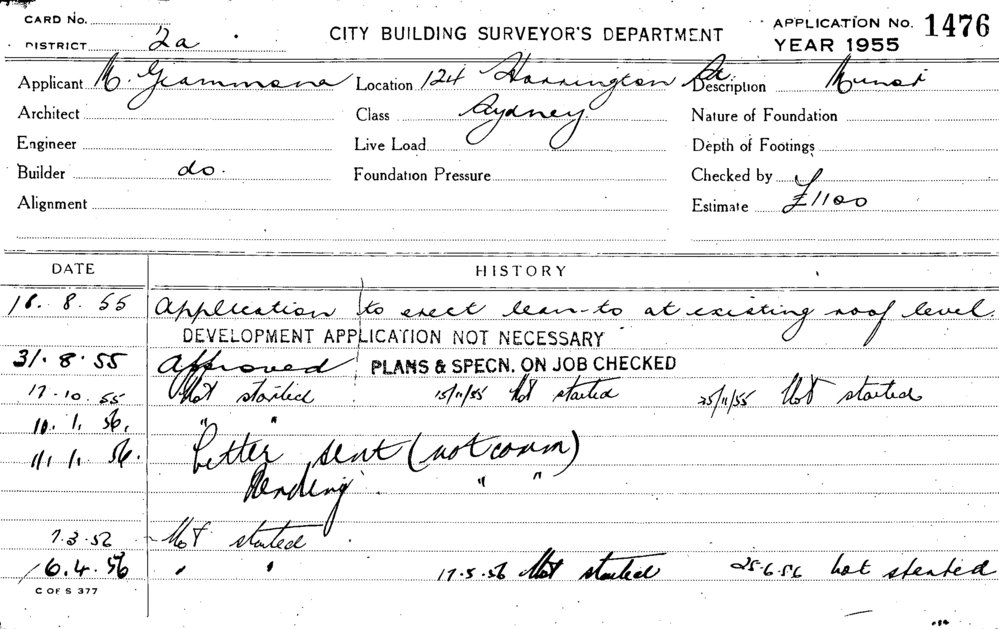 CARD No.
DISTRICT 2a
CITY BUILDING SURVEYOR'S DEPARTMENT
APPLICATION No. 1476
YEAR 1955
Applicant M. Grammona Location 124 Harrington St. Description
Architect Class Sydney. Nature of Foundation
Engineer Live Load Depth of Footings
Builder do. Foundation Pressure Checked by
Alignment Estimate £1100
DATE HISTORY
8. 55 Application to erect lean-to at existing roof level.
DEVELOPMENT APPLICATION NOT NECESSARY
31. 8. 55 Approved PLANS & SPECN. ON JOB CHECKED
17.10.55 Not started 15/11/55 Not started 25/11/55 Not started
10. 1. 56. " "
11. 1. 56. Letter sent (not comm)
Pending " "
7.3.56 Not started
6.4.56 " " 17.5.56 Not started 25.6.56 not started
C OF S 377